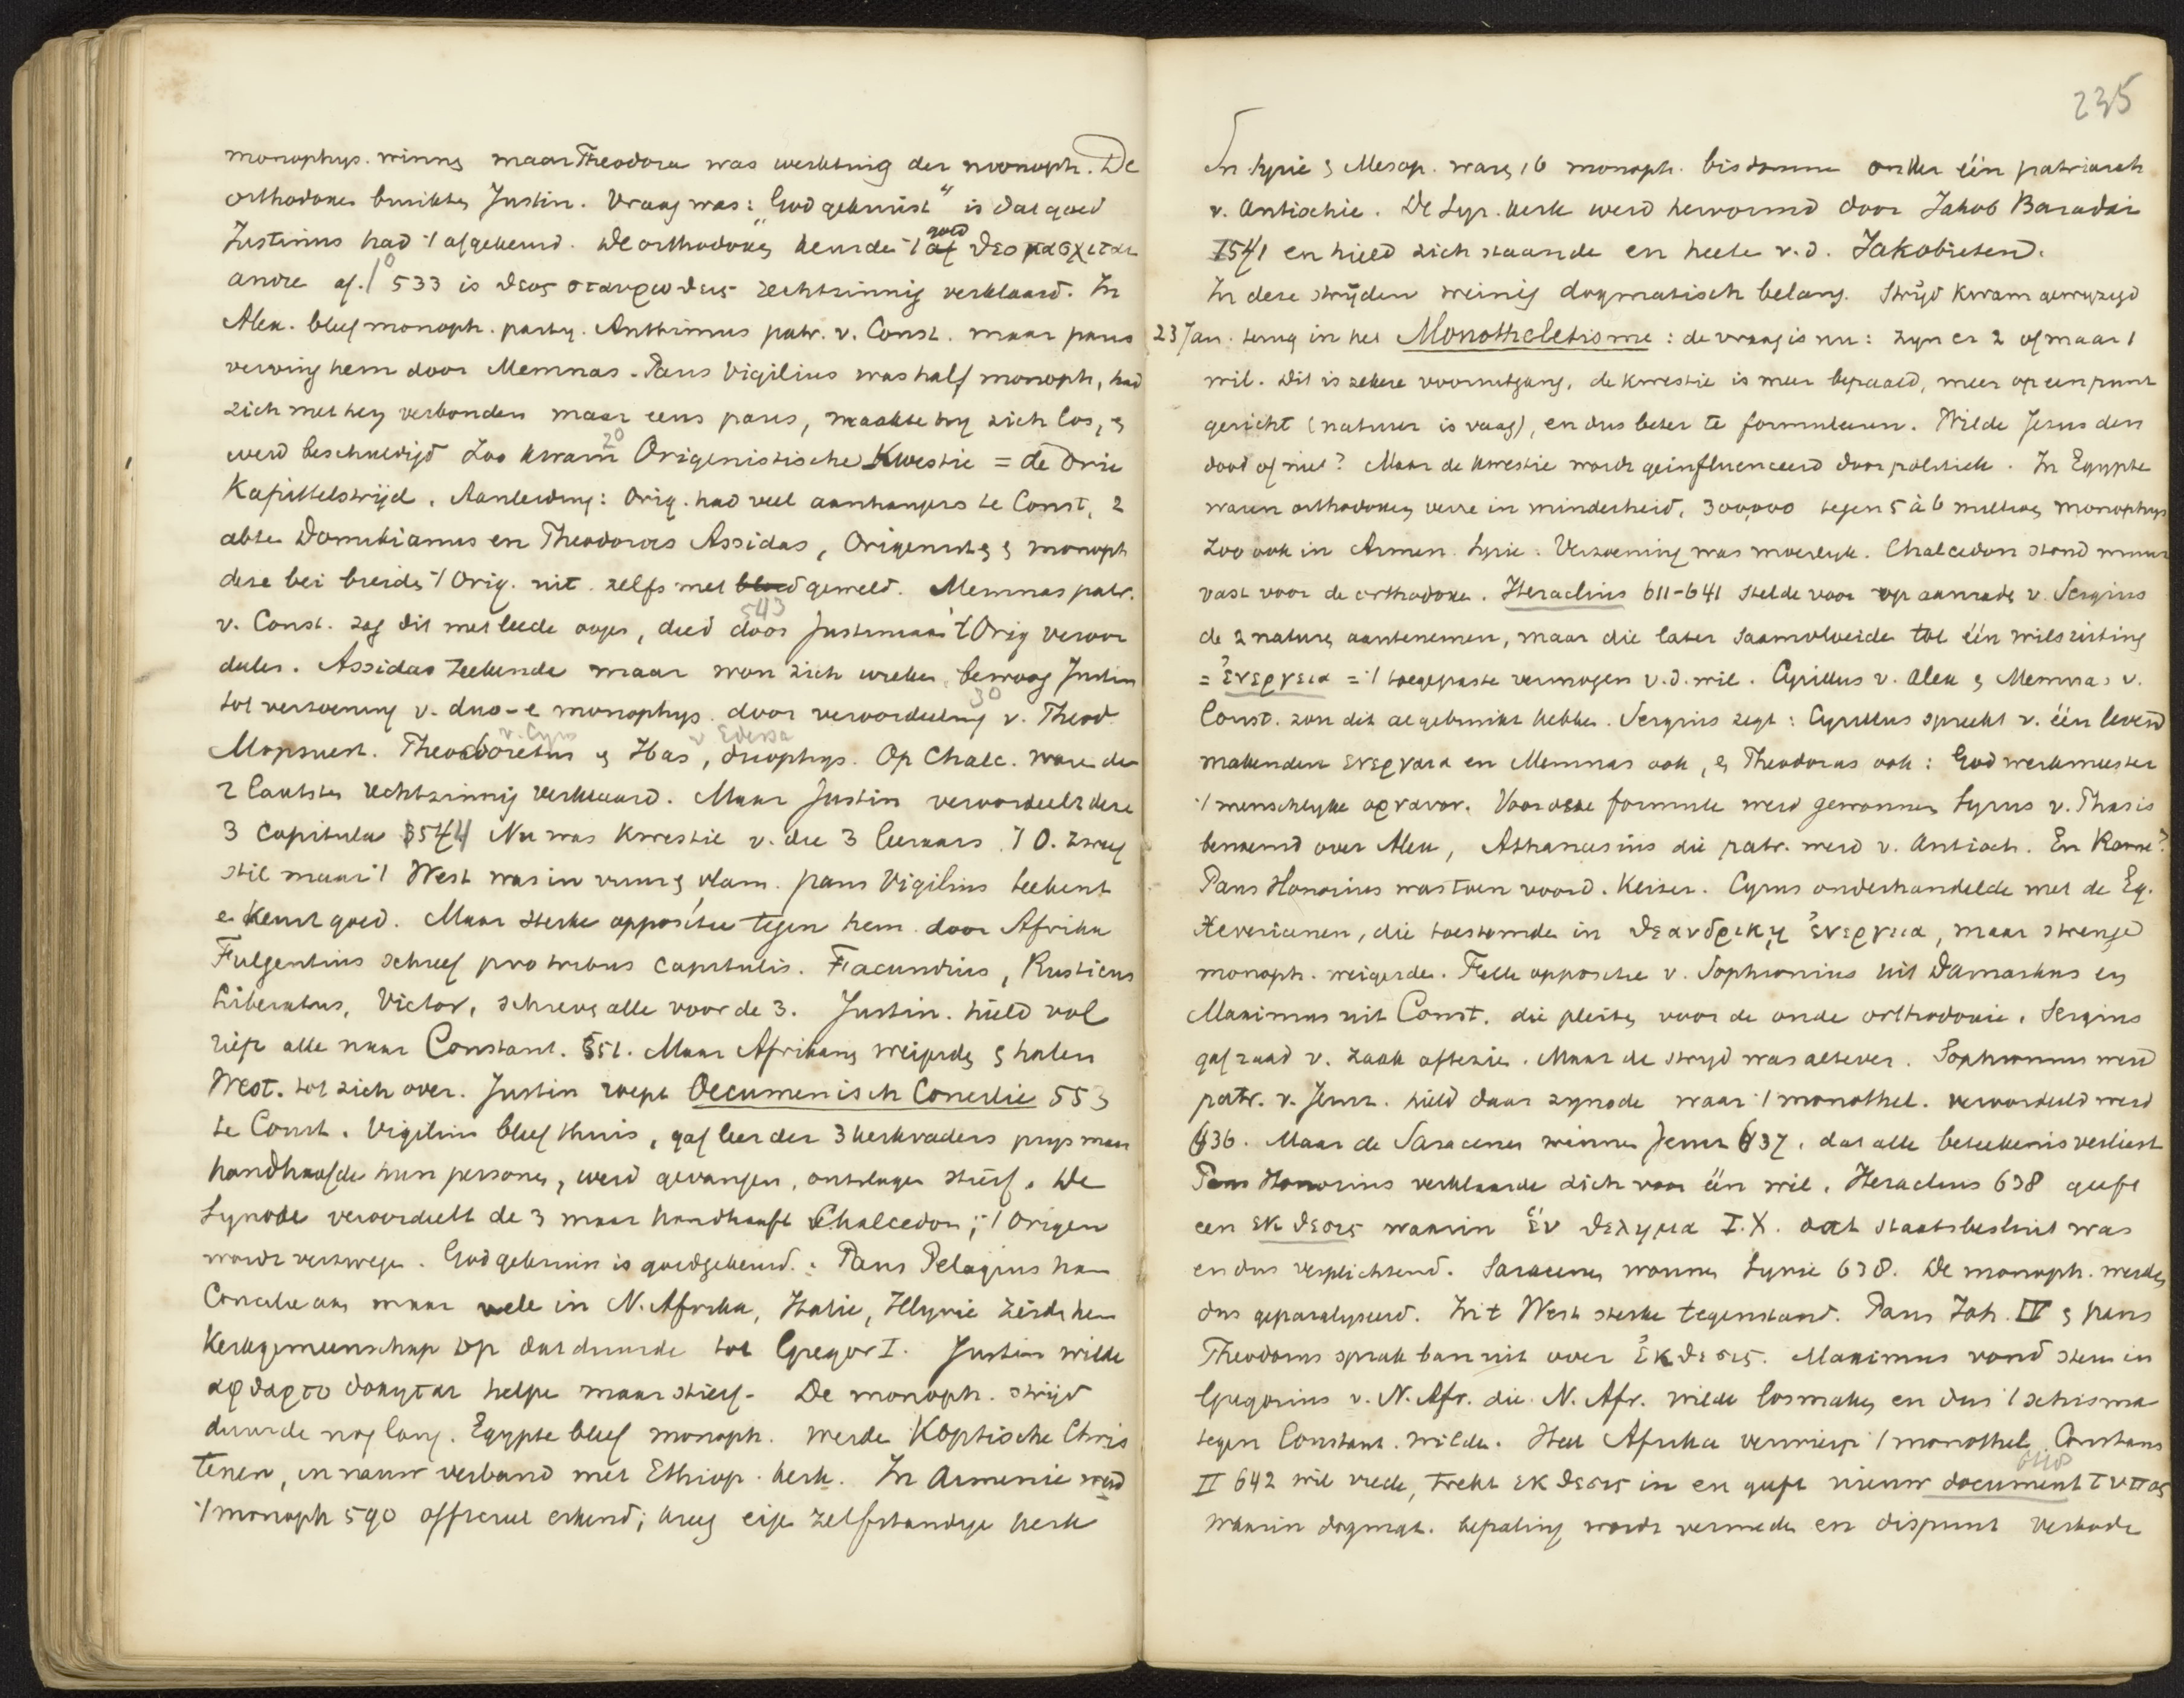 monophys. winnen maar Theodora was werktuig der monoph. De
orthodoxen bewerkten Justin. Vraag was: "God gekruist" is dat goed
Justinus had 't afgekeurd. De orthodoxen keurden 't af goed θεοπασχιται
andre af. 1⁰ 533 is θεος σταυρωθεις rechtzinnig verklaard. In
Alex. bleef monoph. party. Anthimus patr. v. Const. maar paus
verving hem door Memnas. Paus Vigilius was half monoph, had
zich met hen verbonden maar eens paus, maakte hy zich los, en
werd beschuldigd Zoo kwam 2⁰ Origenistische Kwestie = de Drie
Kapittelstrijd. Aanleiding: Orig. had veel aanhangers te Const, 2
abten Domitianus en Theodorus Assidas, Origenisten en monoph
deze bei breiden 't Orig. uit. zelfs met bloed geweld. Memnas patr.
v. Const. zag dit met leede oogen, deed 543 door Justiniaan 't Orig veroor
deelen. Assidas teekende maar won zich wreken, bewoog Justin
tot verzoening v. duo-e monophys. door 3⁰ veroordeeling v. Theod.
Mopsuest. Theodoretus v. Cyrus en Ibas v Edessa, dyophys. Op Chalc. waren de
2 laatsten rechtzinnig verklaard. Maar Justin veroordeelt deze
3 capitula 544 Nu was kwestie v. die 3 leeraars. 't O. zweeg
stil maar 't West was in vuur en vlam. paus Vigilius teekent
e. keurt goed. Maar sterke oppositie tegen hem door Afrika
Fulgentius schreef pro tribus capitulis. Facundius, Rusticus
Liberatus, Victor, schreven alle voor de 3. Justin. hield vol
riep alle naar Constant. 551. Maar Afrikanen weigerden en haalden
West. tot zich over. Justin roept Oecumenisch Concilie 553
te Const. Vigilius bleef thuis, gaf leer der 3 kerkvaders prijs maar
handhaafde hun personen, werd gevangen, ontslagen stierf. De
Synode veroordeelt de 3 maar handhaaft Chalcedon; 't Origen
wordt verzwegen. God gekruist is goedgekeurd. Paus Pelagius nam
Concilie aan maar vele in N. Afrika, Italie, Illyrie zeiden hem
Kerkgemeenschap op dat duurde tot Gregor I. Justin wilde
αφθαρτοδοκηται helpen maar stierf. De monoph. strijd
duurde nog lang. Egypte bleef monoph. werden Koptische Chris
tenen, in nauw verband met Ethiop. kerk. In Armenie werd
't monoph 590 officieel erkend; kreeg eigen zelfstandige kerk
235
In Syrie en Mesop. waren 16 monoph. bisdommen onder één patriarch
v. Antiochie. De Syr. kerk werd hervormd door Jakob Baradai
541 en hield zich staande en heeten v.d. Jakobieten.
In deze strijden weinig dogmatisch belang. Strijd kwam gewyzigd
23 Jan. terug in het Monotheletisme: de vraag is nu: zyn er 2 of maar 1
wil. Dit is zekere vooruitgang, de kwestie is meer bepaald, meer op een punt
gericht (natuur is vaag), en dus beter te formuleeren. Wilde Jezus den
dood of niet? Maar de kwestie wordt geinfluenceerd door politiek. In Egypte
waren orthodoxen verre in minderheid, 300,000 tegen 5 à 6 millioen monophys
Zoo ook in Armen. Syrie. Verzoening was moeielyk. Chalcedon stond muur
vast voor de orthodoxe. Heraclius 611-641 stelde voor op aanraden v. Sergius
de 2 naturen aantenemen, maar die later saamvloeiden tot één wilsuiting
= ἐνεργεια = 't toegepaste vermogen v.d. wil. Cyrillus v. Alex en Memnas v.
Const. zou dit al gebruikt hebben. Sergius zegt: Cyrillus spreekt v. één levend
makenden ενεργεια en Memnas ook, en Theodorus ook: God werkmeester
't menschelyke οργανον. Voor deze formule werd gewonnen Cyrus v. Phasis
benoemd over Alex, Athanasius die patr. werd v. Antioch. En Rome?
Paus Honorius was toen voord. Keizer. Cyrus onderhandelde met de Eg.
Severianen, die toestemden in θεανδρικη ἐνεργεια, maar strenge
monoph. weigerden. Felle oppositie v. Sophronius uit Damaskus en
Maximus uit Const. die pleiten voor de oude orthodoxie. Sergius
gaf raad v. zaak aftezien. Maar de stryd was alte ver. Sophronius werd
patr. v. Jeruz. hield daar synode waar 't monothel. veroordeeld werd
636. Maar de Saracenen winnen Jeruz 637, dat alle beteekenis verliest
Paus Honorius verklaarde zich voor één wil. Heraclius 638 geeft
een εκθεσις waarin ἑν θελημα Ι.Χ. dat staatsbesluit was
en dus verplichtend. Saracenen wonnen Syrie 638. De monoph. werden
dus geparalyseerd. In 't West sterke tegenstand. Paus Joh. IV en paus
Theodorus sprak ban uit over ἐκθεσις. Maximus vond steun in
Gregorius v. N. Afr. die N. Afr. wilde losmaken en dus 't schisma
tegen Constant. wilde. Heel Afrika verwierp 't monothel. Constans
II 642 wil vrede, trekt εκθεσις in en geeft nieuw document τυπος 648
waarin dogmat. bepaling wordt vermeden en dispuut verboden